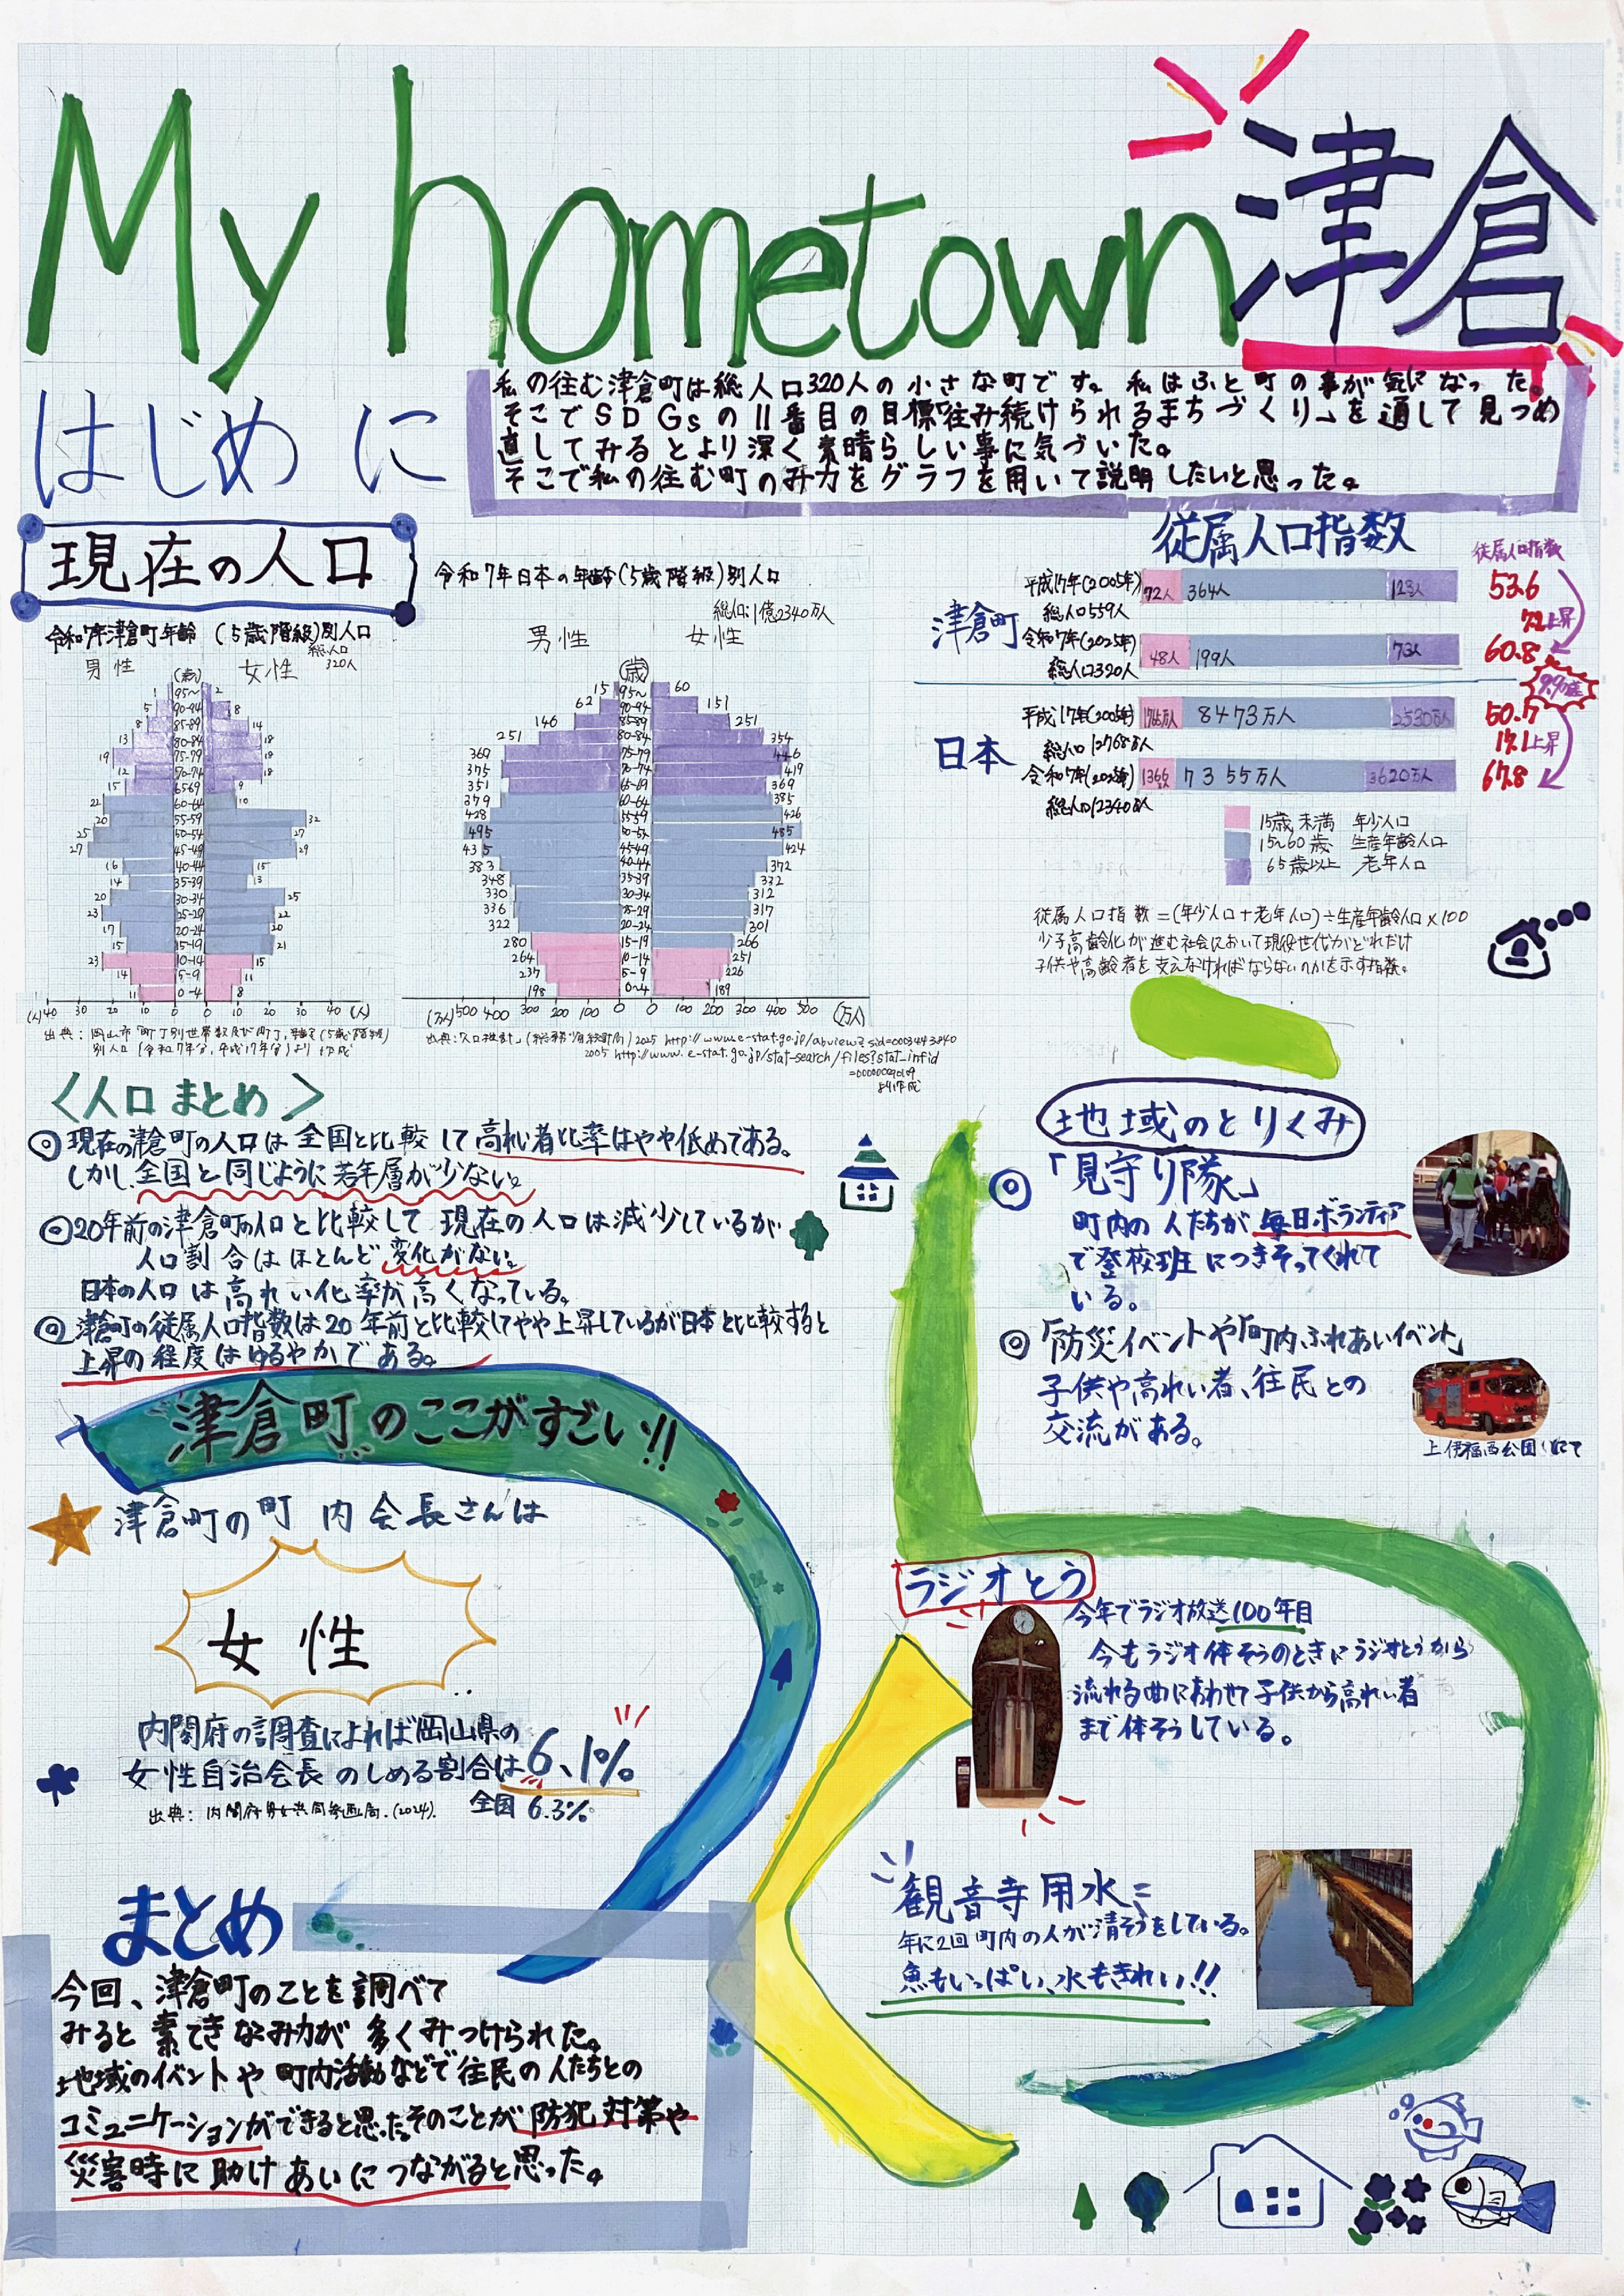 My hometown 津倉
はじめに
私の住む津倉町は総人口320人の小さな町です。私はふと町の事が気になった。
そこでSDGsの11番目の目標「住み続けられるまちづくり」を通して見つめ
直してみるとより深く素晴らしい事に気づいた。
そこで私の住む町のみ力をグラフを用いて説明したいと思った。
現在の人口
令和7年津倉町年齢(5歳階級)別人口
総人口
320人
男性 (歳) 女性
1 95~ 2
5 90-94 8
8 85-89 14
13 80-84 18
19 75-79 18
12 70-74 18
15 65-69 9
21 60-64 10
20 55-59 32
25 50-54 27
27 45-49 29
16 40-44 15
14 35-39 13
20 30-34 25
23 25-29 22
17 20-24 20
15 15-19 21
23 10-14 15
14 5-9 11
11 0-4 8
(人)40 30 20 10 0 0 10 20 30 40 (人)
令和7年日本の年齢(5歳階級)別人口
総人口:1億2340万人
男性 女性
(歳)
15 95~ 60
62 90-94 151
146 85-89 251
251 80-84 354
369 75-79 446
375 70-74 419
351 65-69 369
379 60-64 385
428 55-59 426
495 50-54 485
435 45-49 424
383 40-44 372
348 35-39 332
330 30-34 312
336 25-29 317
322 20-24 301
280 15-19 266
264 10-14 251
237 5-9 226
198 0-4 189
(万人)500 400 300 200 100 0 0 100 200 300 400 500 (万人)
出典:「人口推計」(総務省統計局)2025
2005
より作成
従属人口指数
従属人口指数
津倉町
平成17年(2005年) 72人 364人 123人 53.6
総人口559人
7.2上昇
令和7年(2025年) 48人 199人 73人 60.8
総人口320人
日本
平成17年(2005年) 1765万人 8473万人 2530万人 50.7
総人口12768万人
17.1上昇
令和7年(2025年) 1366万人 7355万人 3620万人 67.8
総人口12340万人
15歳未満 年少人口
15~60歳 生産年齢人口
65歳以上 老年人口
従属人口指数=(年少人口+老年人口)÷生産年齢人口×100
少子高齢化が進む社会において現役世代がどれだけ
子供や高齢者を支えなければならないのかを示す指標。
<人口まとめ>
◎現在の津倉町の人口は全国と比較して高れい者比率はやや低めである。
しかし全国と同じように若年層が少ない。
◎20年前の津倉町の人口と比較して現在の人口は減少しているが
人口割合はほとんど変化がない。
日本の人口は高れい化率が高くなっている。
◎津倉町の従属人口指数は20年前と比較してやや上昇しているが日本と比較すると
上昇の程度はゆるやかである。
津倉町のここがすごい!!
津倉町の町内会長さんは
女性
内閣府の調査によれば岡山県の
女性自治会長のしめる割合は6.1%
全国 6.3%
出典:内閣府男女共同参画局.(2024).
地域のとりくみ
◎「見守り隊」
町内の人たちが毎日ボランティア
で登校班につきそってくれて
いる。
◎「防災イベントや「町内ふれあいイベント」
子供や高れい者、住民との
交流がある。
上伊福西公園にて
ラジオとう
今年でラジオ放送100年目
今もラジオ体そうのときにラジオとうから
流れる曲にあわせて子供から高れい者
まで体そうしている。
観音寺用水
年に2回町内の人が清そうをしている。
魚もいっぱい、水もきれい!!
まとめ
今回、津倉町のことを調べて
みると素てきなみ力が多くみつけられた。
地域のイベントや町内活動などで住民の人たちとの
コミュニケーションができると思った。そのことが防犯対策や
災害時に助けあいにつながると思った。